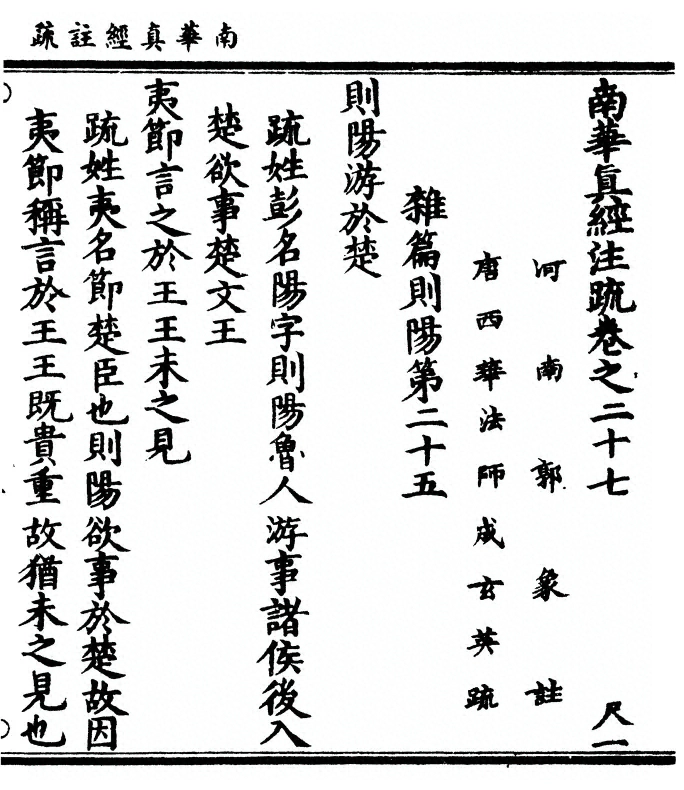 南華真經註疏
南華眞經注疏卷之二十七 尺一
河南郭象註
唐西華法師成玄英疏
雜篇則陽第二十五
則陽游於楚
疏姓彭名陽字則陽魯人游事諸侯後入
楚欲事楚文王
夷節言之於王王未之見
疏姓夷名節楚臣也則陽欲事於楚故因
夷節稱言於王王既貴重故猶未之見也